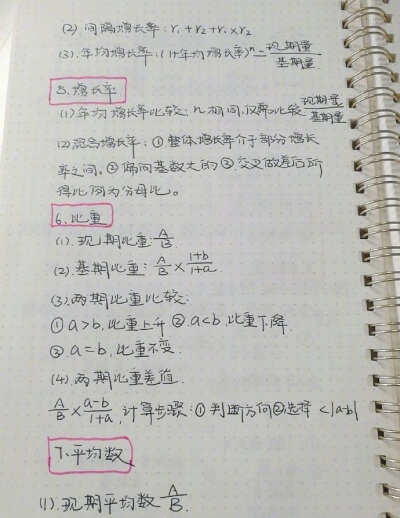 (2). 间隔增长率: r₁+r₂+r₁×r₂
(3). 年均增长率: (1+年均增长率)ⁿ=现期量/基期量
5. 增长率
(1) 年均增长率比较: n相同,仅需比较 现期量/基期量
(2) 混合增长率: ①整体增长率介于部分增长
率之间。②偏向基数大的 ③.交叉做差后所
得比例为分母比。
6. 比重
(1). 现期比重: A/B.
(2). 基期比重: A/B × (1+b)/(1+a)
(3) 两期比重比较:
① a>b, 比重上升 ② a<b, 比重下降.
③. a=b, 比重不变.
(4). 两期比重差值.
A/B × (a-b)/(1+a), 计算步骤: ①判断方向②选择 <|a-b|
7. 平均数
(1). 现期平均数 A/B.